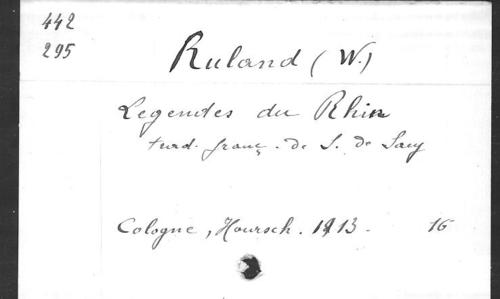 442
295
Ruland (W.)
Legendes du Rhin
trad. franç. de S. de Sacy
Cologne, Hoursch. 1913. 16